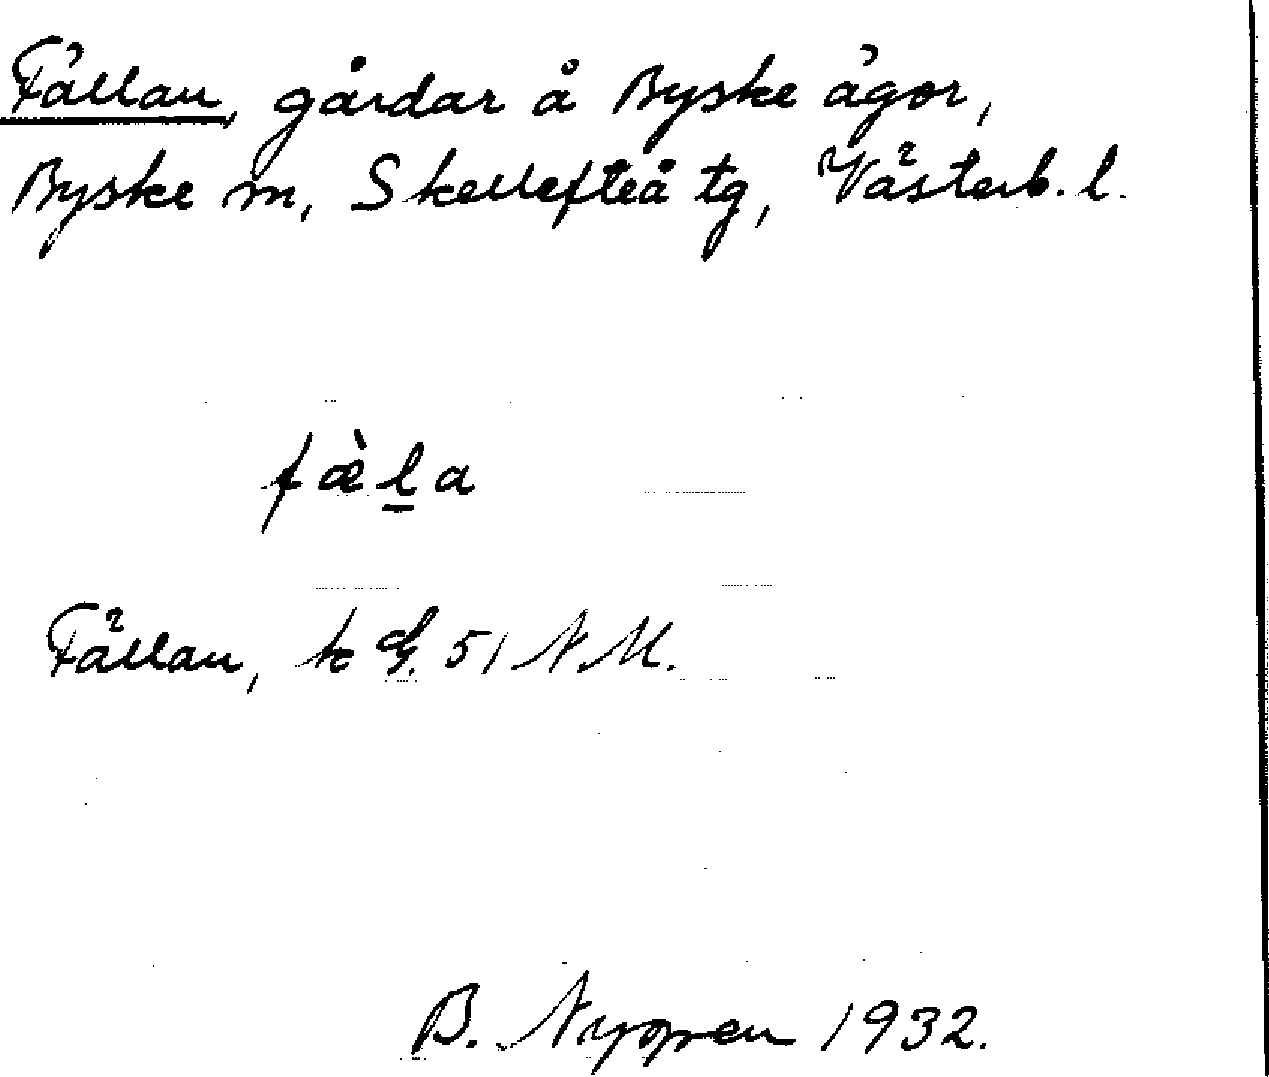 Fällan, gårdar å Byske ägor,
Byske sn, Skellefteå tg, Västerb. l.
fæ̀l̲a
Fällan, k G. 51 N M.
B. Nyopen 1932.